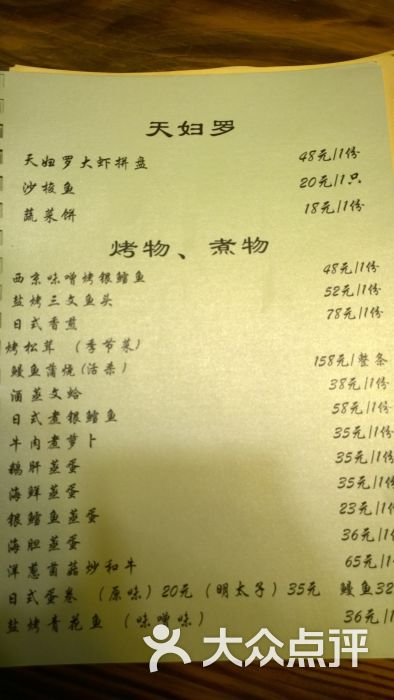 天妇罗
天妇罗大虾拼盘 48元/1份
沙梭鱼 20元/1只
蔬菜饼 18元/1份
烤物、煮物
西京味噌烤银鳕鱼 48元/1份
盐烤三文鱼头 52元/1份
日式香煎 78元/1份
烤松茸 （季节菜）
鳗鱼蒲烧(活杀) 158元/整条
酒蒸文蛤 38元/1份
日式煮银鳕鱼 58元/1份
牛肉煮萝卜 35元/1份
鹅肝蒸蛋 35元/1份
海鲜蒸蛋 35元/1份
银鳕鱼蒸蛋 23元/1份
海胆蒸蛋 36元/1份
洋葱菌菇炒和牛 65元/1份
日式蛋卷 （原味）20元（明太子）35元 鳗鱼32
盐烤青花鱼（味噌味） 36元/1份
大众点评